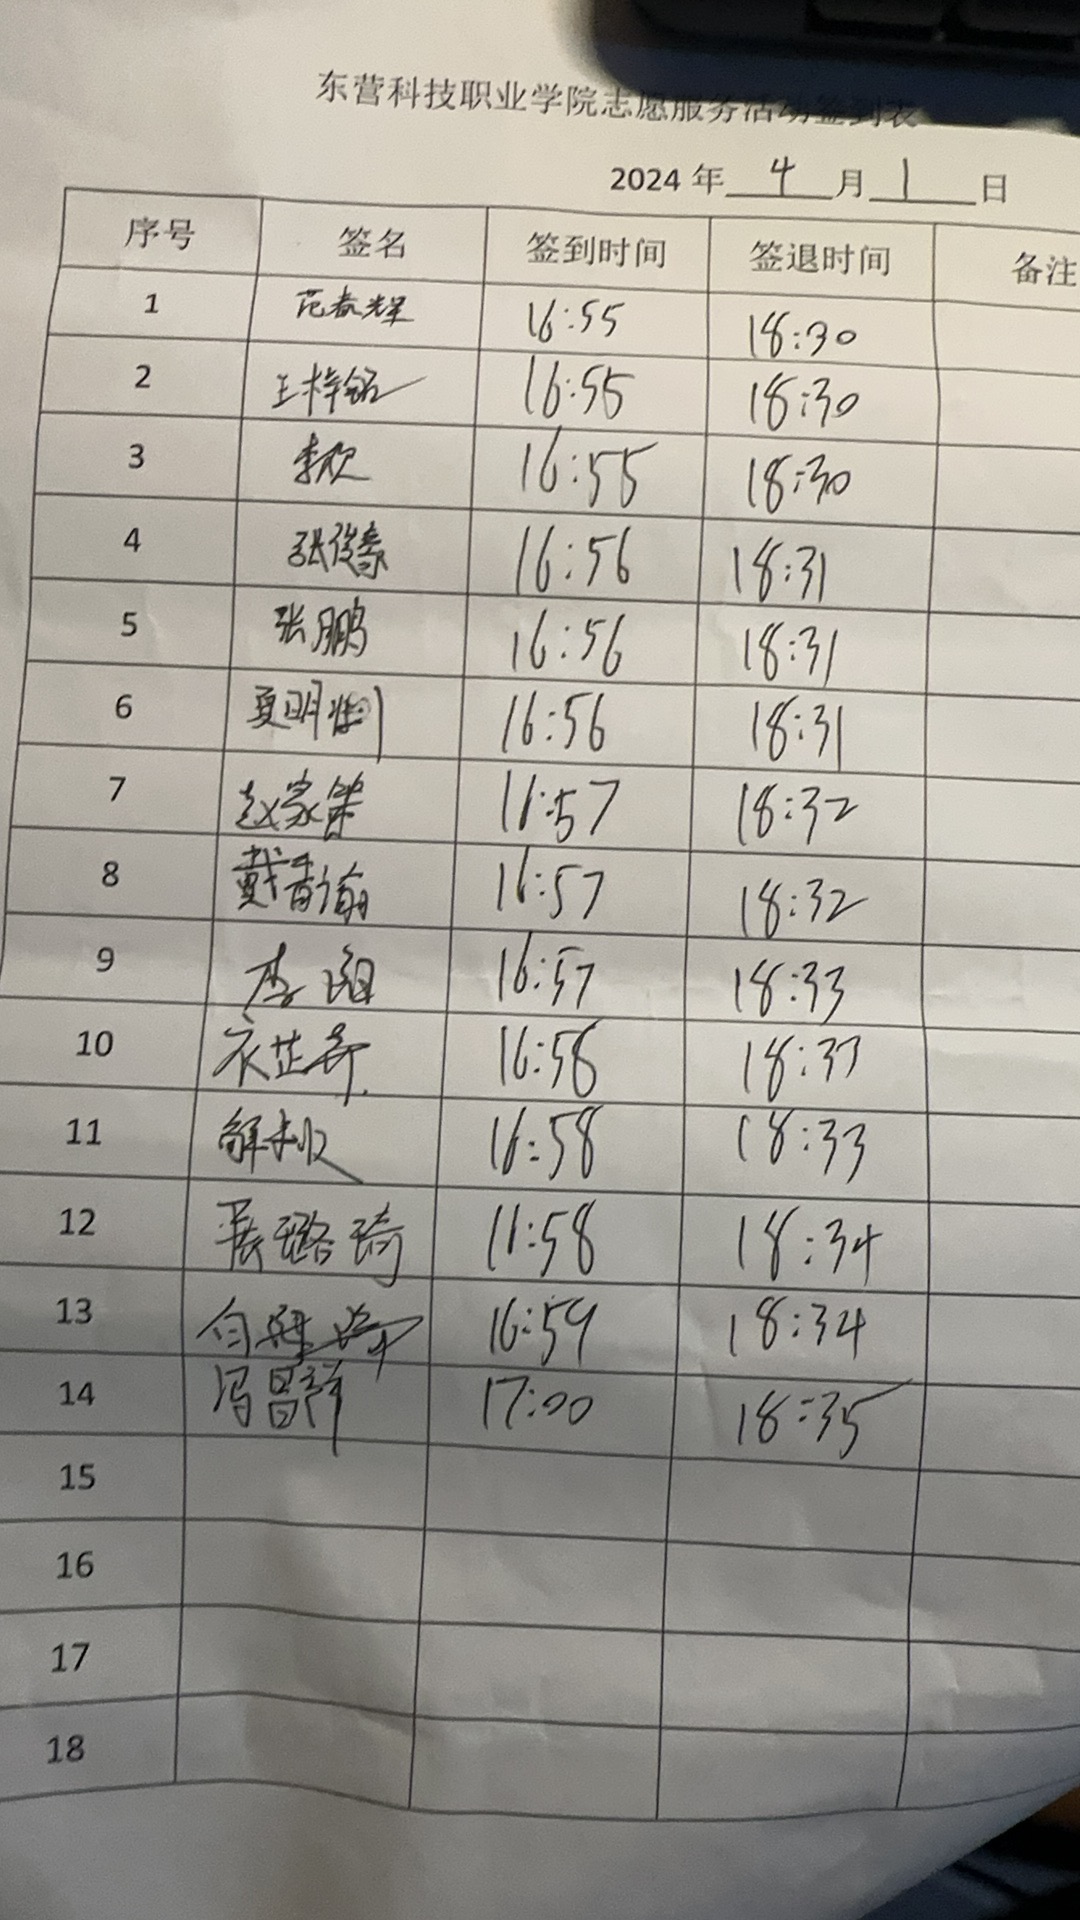 东营科技职业学院志愿服务活动签到表
2024 年 4 月 1 日
序号 签名 签到时间 签退时间 备注
1 范春辉 16:55 18:30
2 王梓铭 16:55 18:30
3 李欣 16:55 18:30
4 张俊豪 16:56 18:31
5 张鹏 16:56 18:31
6 夏明 16:56 18:31
7 赵家 16:57 18:32
8 戴 16:57 18:32
9 李 16:57 18:33
10 衣芷 16:58 18:33
11 解 16:58 18:33
12 展璐琦 16:58 18:34
13 16:59 18:34
14 冯昌祥 17:00 18:35
15
16
17
18